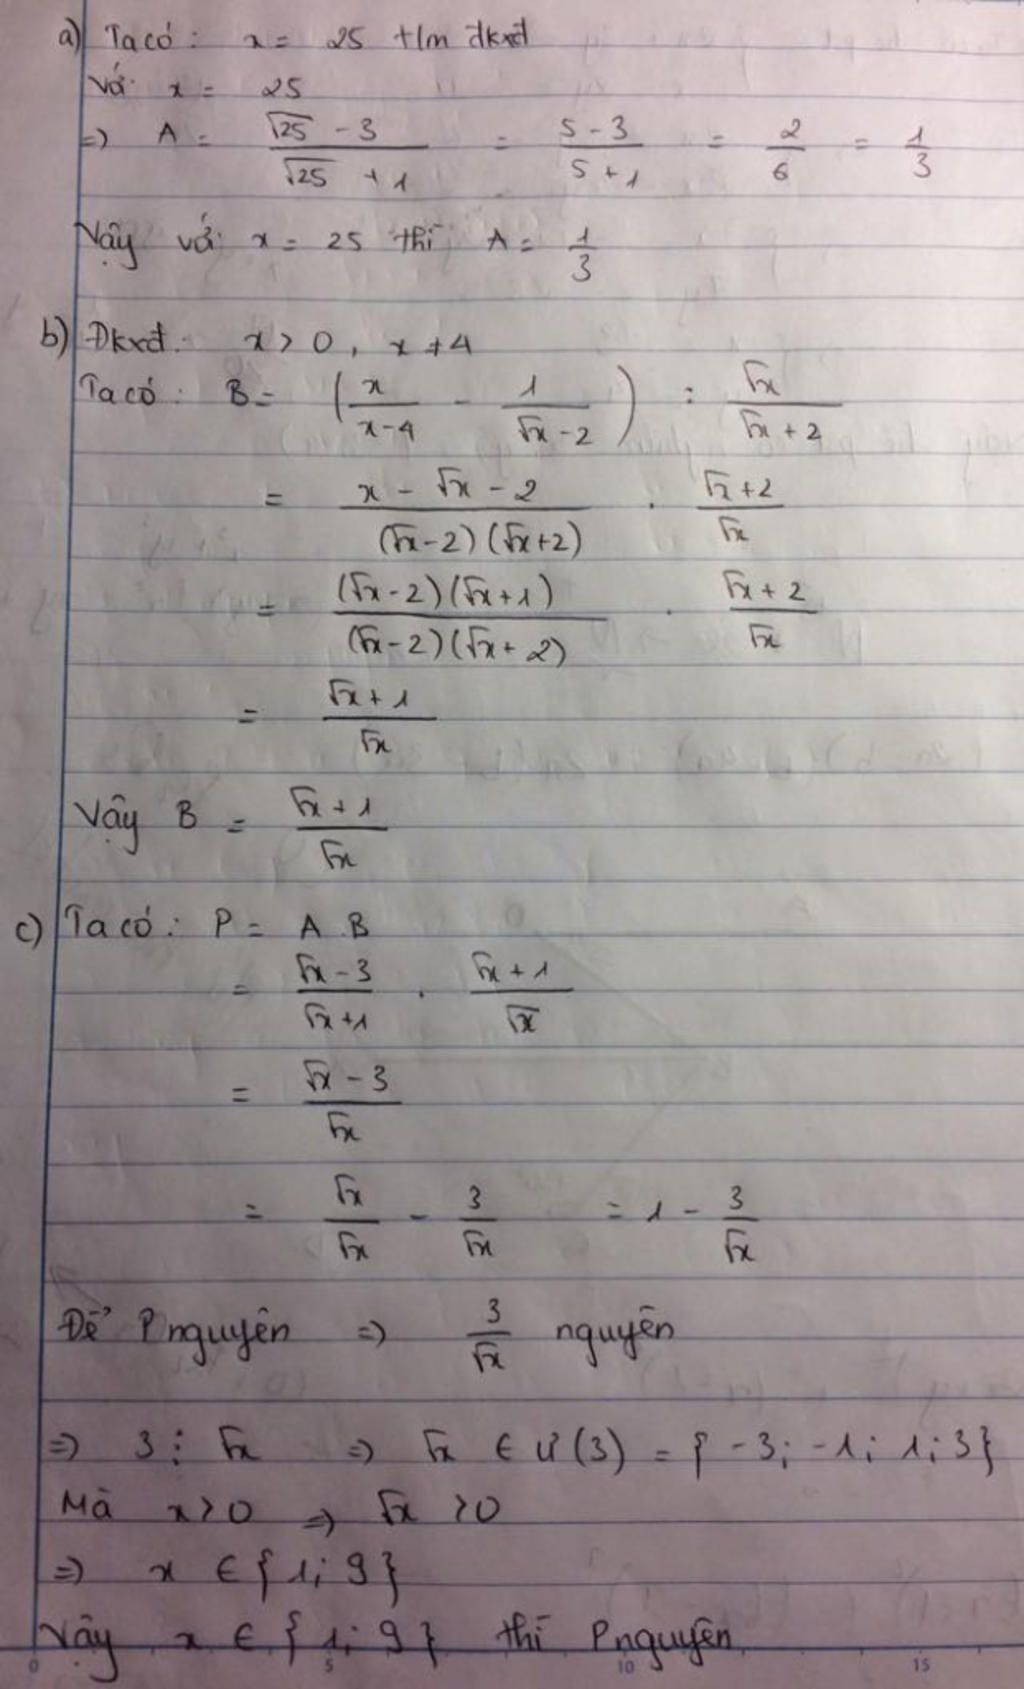 a) Ta có: x = 25 t/m đkxđ
Với x = 25
=> A = (√25 - 3)/(√25 + 1) = (5 - 3)/(5 + 1) = 2/6 = 1/3
Vậy với x = 25 thì A = 1/3
b) Đkxđ: x > 0, x ≠ 4
Ta có: B = (x/(x-4) - 1/(√x - 2)) : √x/(√x + 2)
= (x - √x - 2)/((√x - 2)(√x + 2)) . (√x + 2)/√x
= ((√x - 2)(√x + 1))/((√x - 2)(√x + 2)) . (√x + 2)/√x
= (√x + 1)/√x
Vậy B = (√x + 1)/√x
c) Ta có: P = A.B
= (√x - 3)/(√x + 1) . (√x + 1)/√x
= (√x - 3)/√x
= √x/√x - 3/√x = 1 - 3/√x
Để P nguyên => 3/√x nguyên
=> 3 ⋮ √x => √x ∈ Ư(3) = {-3; -1; 1; 3}
Mà x > 0 => √x > 0
=> x ∈ {1; 9}
Vậy x ∈ {1; 9} thì P nguyên
0 5 10 15